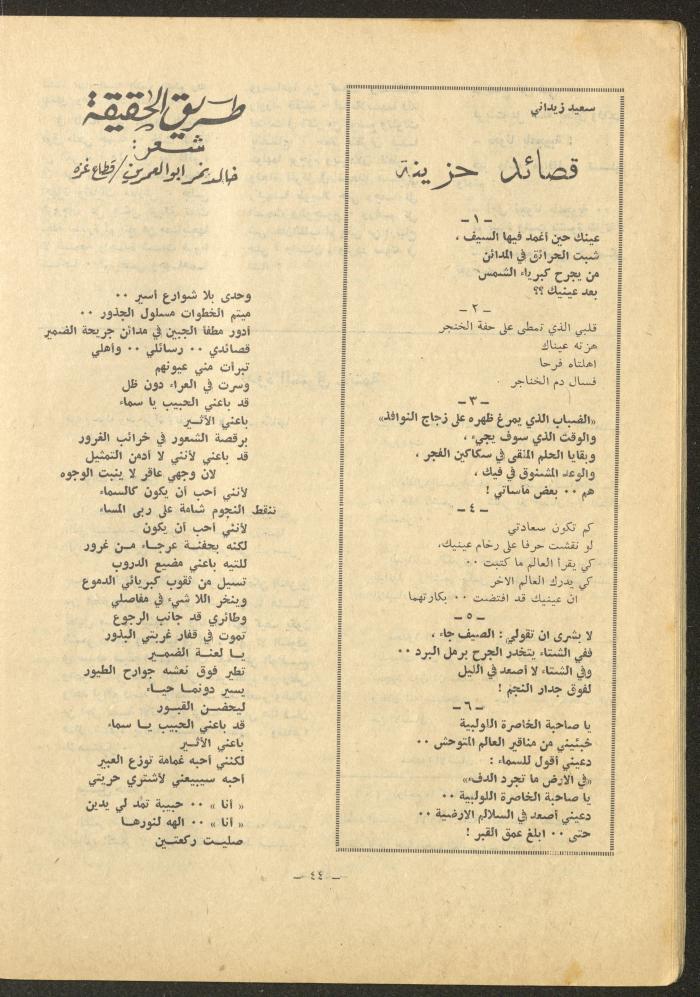 سعيد زيداني
قصائد حزينة
- ١ -
عينك حين أغمد فيها السيف ،
شبت الحرائق في المدائن
من يجرح كبرياء الشمس
بعد عينيك ؟؟
- ٢ -
قلبي الذي تمطى على حفة الخنجر
هزته عيناك
اهلتاه فرحا
فسال دم الخناجر
- ٣ -
«الضباب الذي يمرغ ظهره على زجاج النوافذ»
والوقت الذي سوف يجيء ،
وبقايا الحلم الملقى في سكاكين الفجر ،
والوعد المشنوق في فيك ،
هم ٠٠ بعض مأساتي !
- ٤ -
كم تكون سعادتي
لو نقشت حرفا على رخام عينيك،
كي يقرأ العالم ما كتبت ٠٠
كي يدرك العالم الاخر
ان عينيك قد افتضت ٠٠ بكارتهما
- ٥ -
لا بشرى ان تقولي : الصيف جاء ،
ففي الشتاء يتخدر الجرح برمل البرد ٠٠
وفي الشتاء لا أصعد في الليل
لفوق جدار النجم !
- ٦ -
يا صاحبة الخاصرة اللولبية
خبئيني من مناقير العالم المتوحش ٠٠
دعيني أقول للسماء :
«في الارض ما تجرد الدفء»
يا صاحبة الخاصرة اللولبية ٠٠
دعيني أصعد في السلالم الارضية ٠٠
حتى ٠٠ ابلغ عمق القبر !
طريق الحقيقة
شعر :
خالد نمر ابو العمرين / قطاع غزة
وحدى بلا شوارع أسير ٠٠
ميتم الخطوات مسلول الجذور ٠٠
أدور مطفأ الجبين في مدائن جريحة الضمير
قصائدي ٠٠ رسائلي ٠٠ وأهلي
تبرأت مني عيونهم
وسرت في العراء دون ظل
قد باعني الحبيب يا سماء
باعني الأثير
برقصة الشعور في خرائب الغرور
قد باعني لأنني لا أدمن التمثيل
لان وجهي عاقر لا ينبت الوجوه
لأنني أحب أن يكون كالسماء
تنقط النجوم شامة على ربى المساء
لأنني أحب أن يكون
لكنه بحفنة عرجاء من غرور
للتيه باعني مضيع الدروب
تسيل من ثقوب كبريائي الدموع
وينخر اللا شيء في مفاصلي
وطائري قد جانب الرجوع
تموت في قفار غربتي البذور
يا لعنة الضمير
تطير فوق نعشه جوارح الطيور
يسير دونما حياء
ليحضن القبور
قد باعني الحبيب يا سماء
باعني الأثير
لكنني أحبه غمامة توزع العبير
أحبه سيبيعني لأشتري حريتي
« أنا » ٠٠ حبيبة تمد لي يدين
« أنا » ٠٠ الهه لنورها
صليت ركعتين
- ٤٤ -